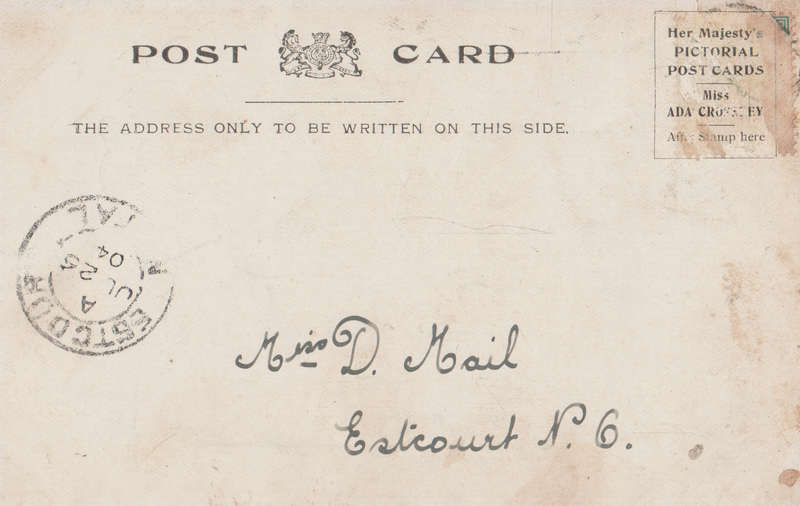 POST CARD
THE ADDRESS ONLY TO BE WRITTEN ON THIS SIDE.
Her Majesty's
PICTORIAL
POST CARDS
Miss
ADA
Stamp here
ESTCOU
A
JL 25
04
Miss D. Mail
Estcourt N. C.